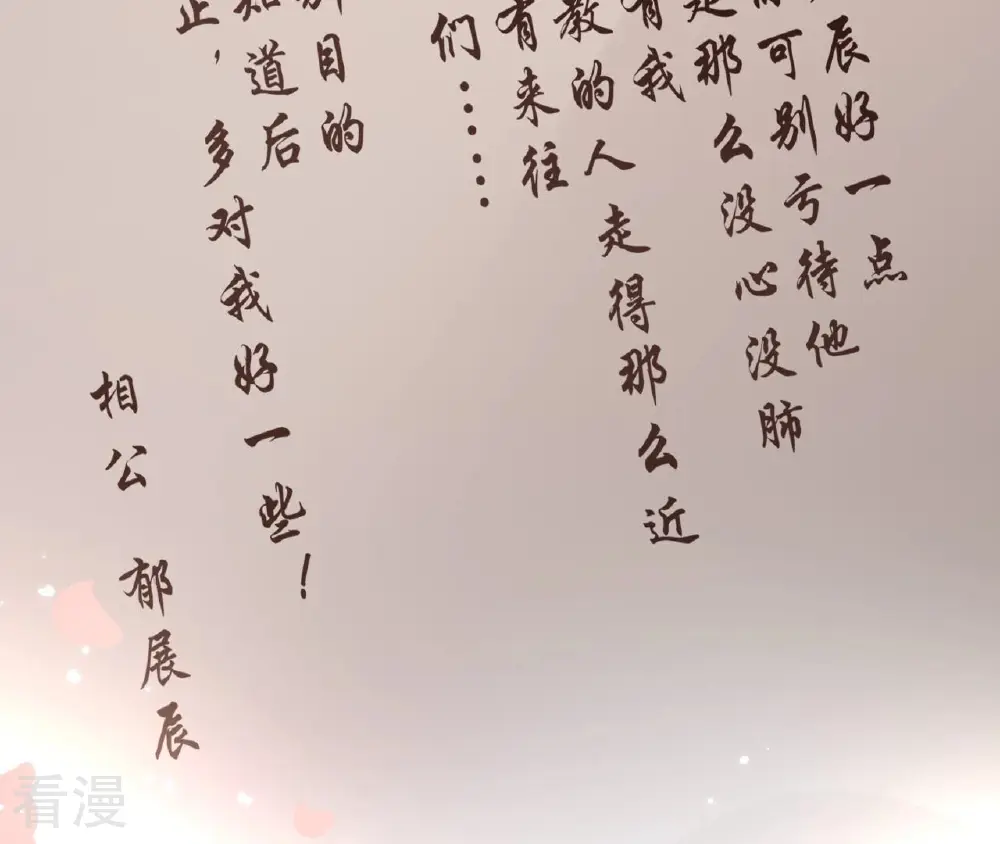 辰好一点
可别亏待他
那么没心没肺
有我
教的人走得那么近
有来往
们……
目的
知道后
止，多对我好一些！
相公 郁展辰
看漫